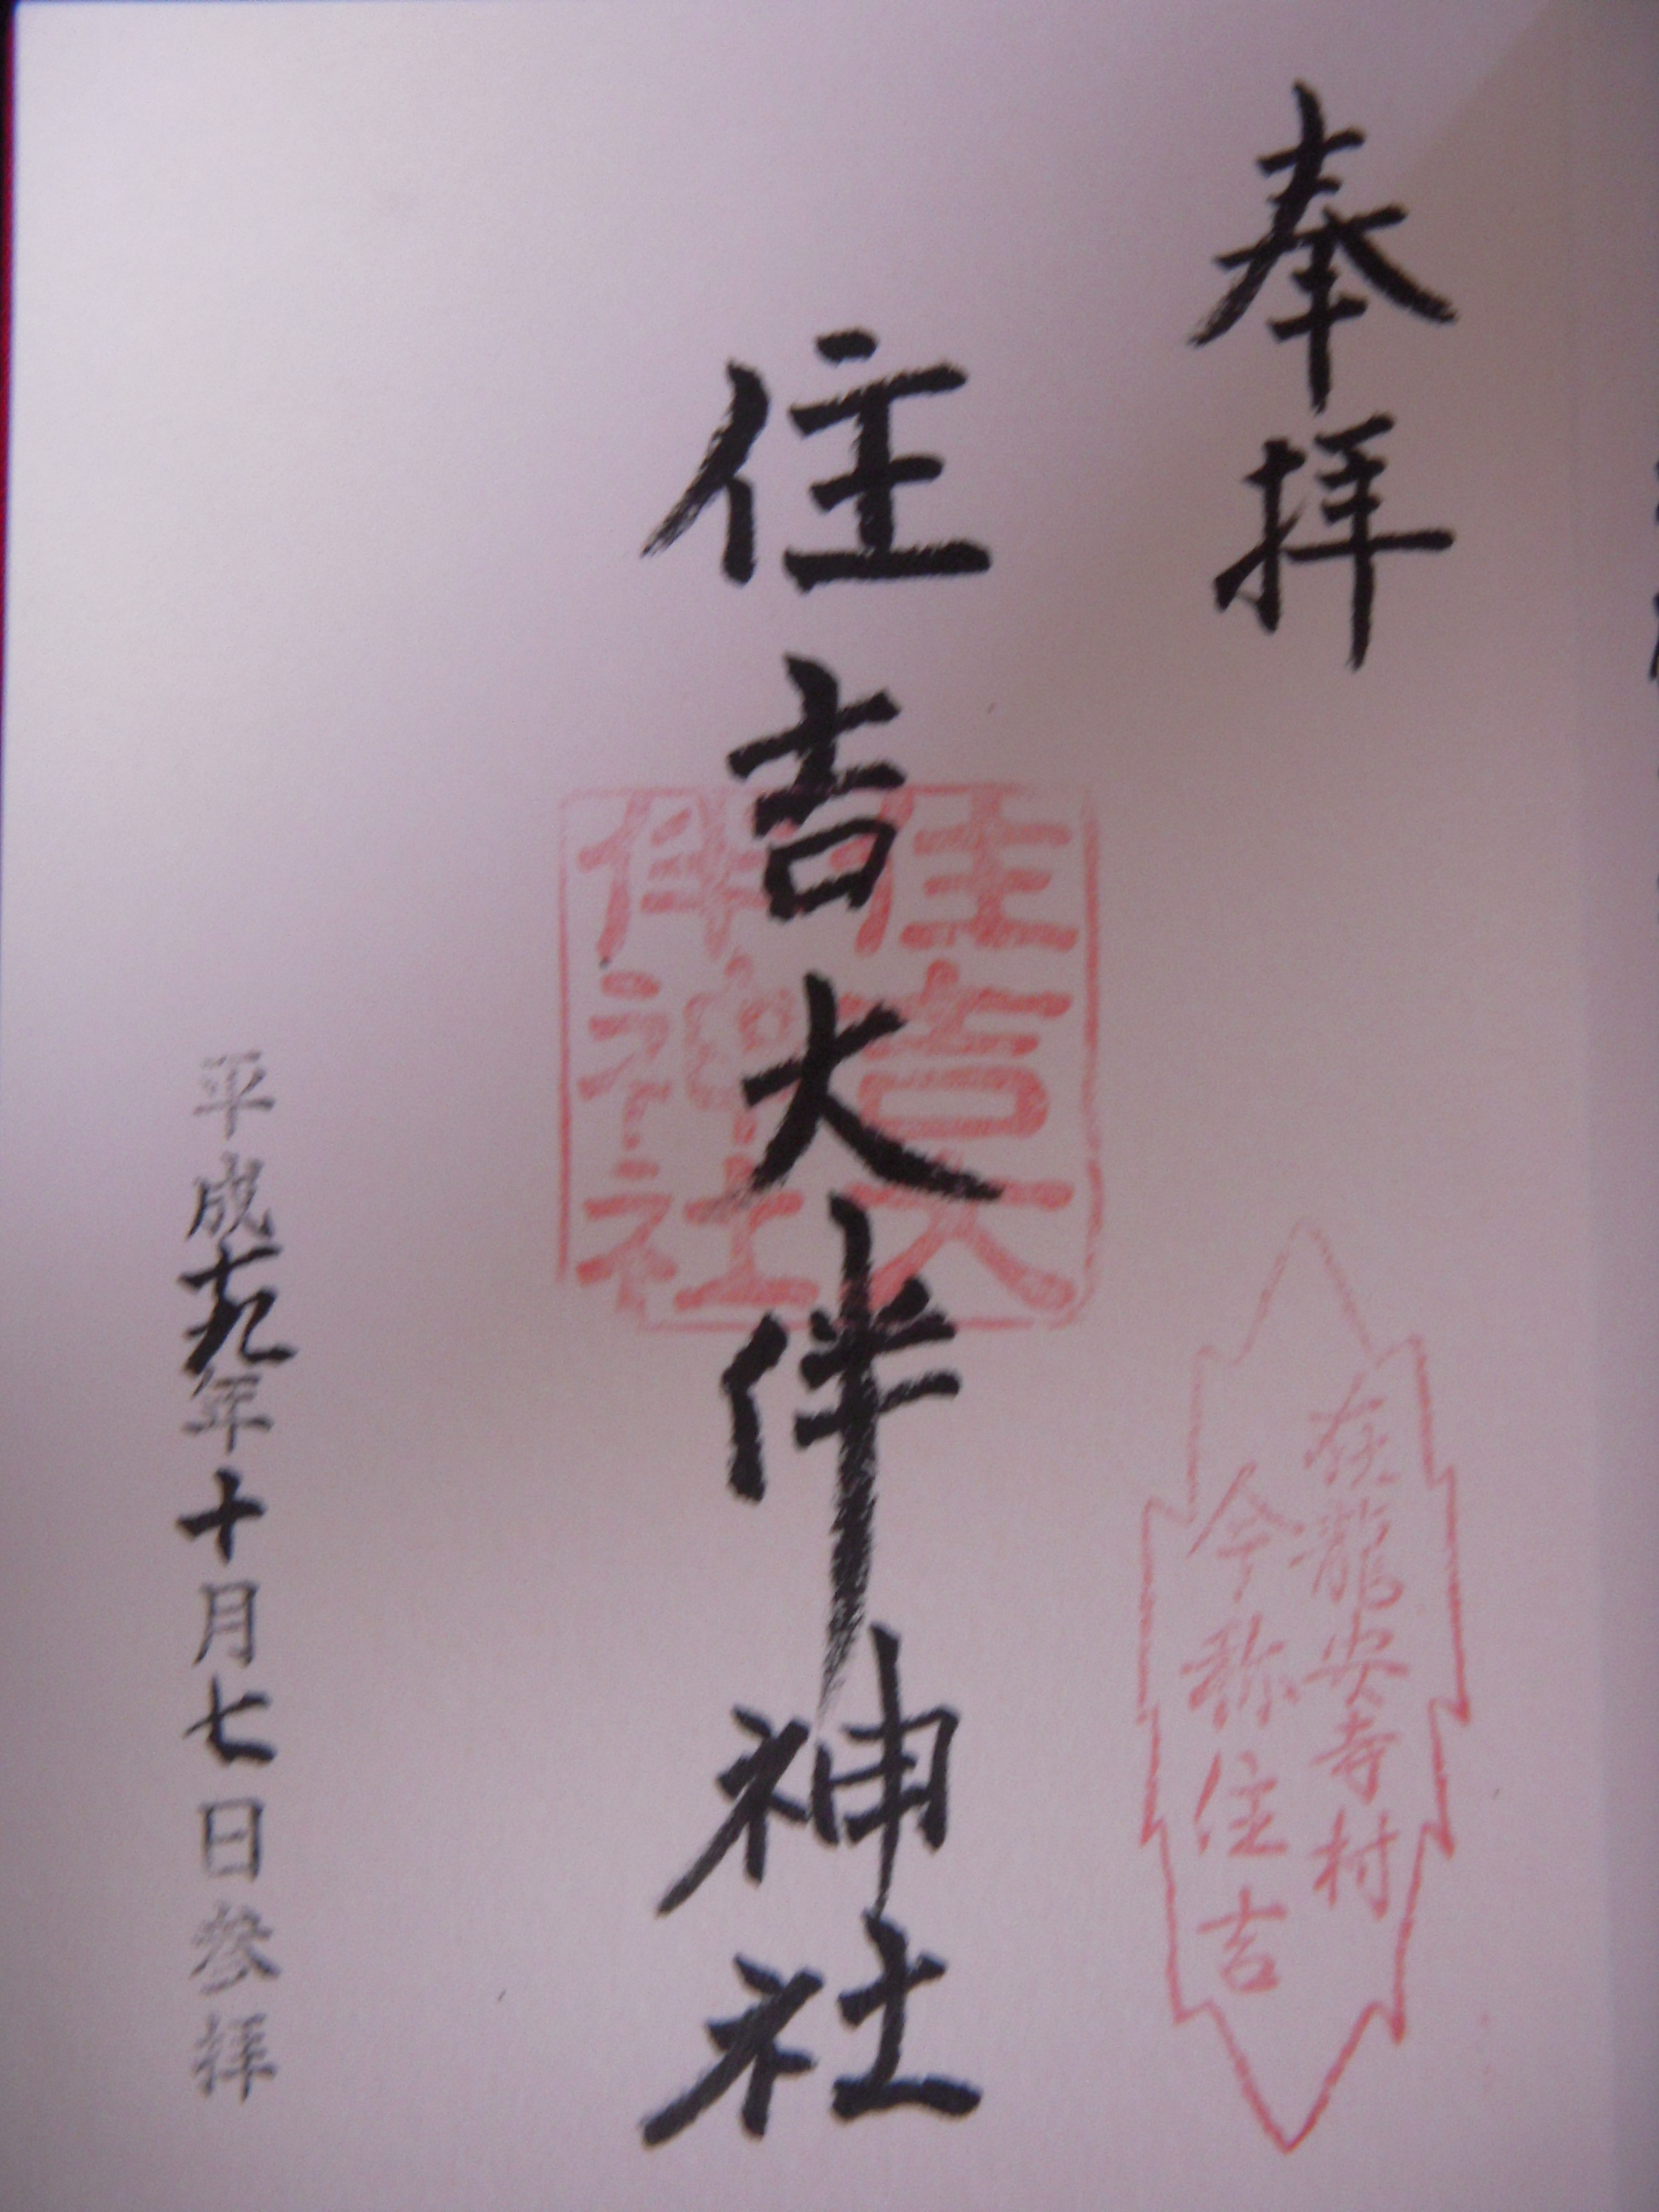 奉拝
在龍安寺村
今称住吉
住吉大伴神社
住吉大
伴神社
平成十九年十月七日参拝